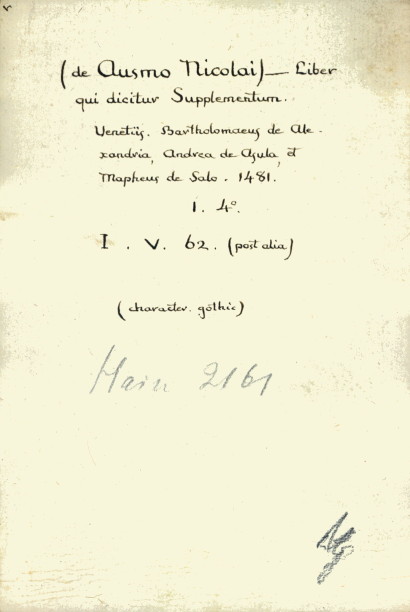 (de Ausmo Nicolai) — Liber
qui dicitur Supplementum.
Venetiis. Bartholomaeus de Ale-
xandria, Andrea de Asula, et
Mapheus de Salo. 1481.
1. 4°.
I. V. 62. (post alia)
(character. gothic)
Hain 2161